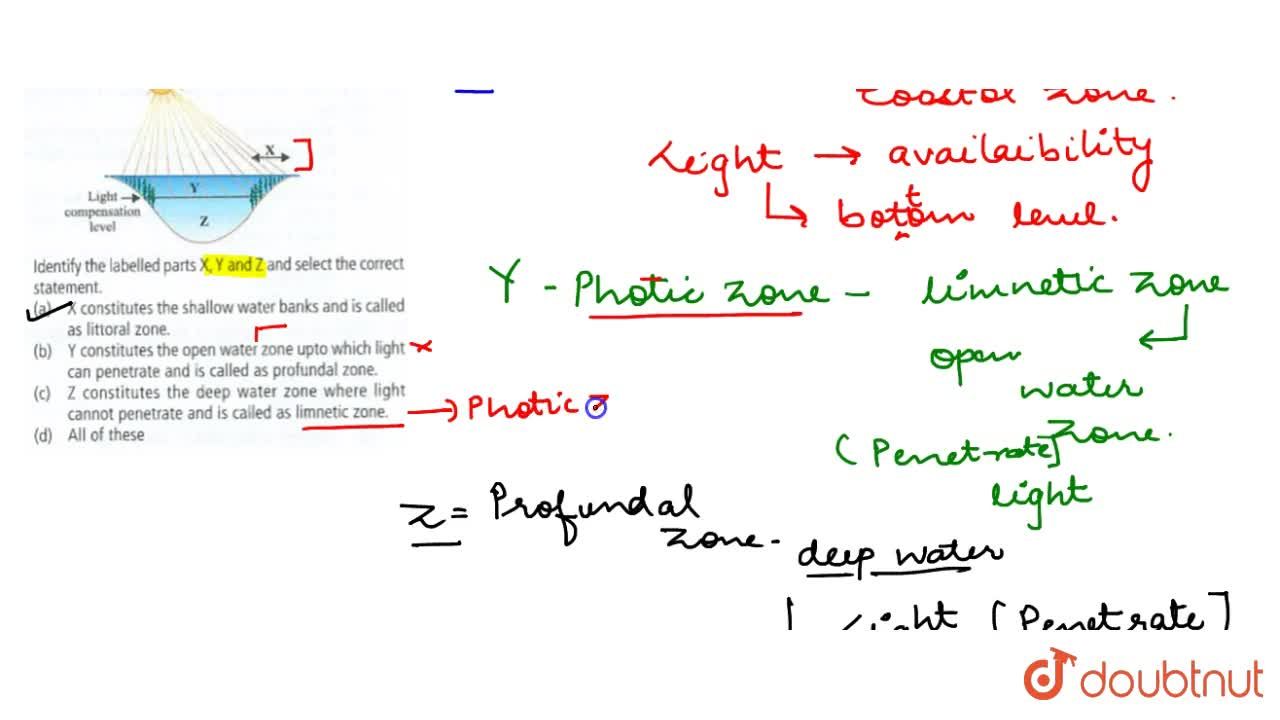 X
Y
Light
compensation
level
Z
Identify the labelled parts X, Y and Z and select the correct
statement.
(a) X constitutes the shallow water banks and is called
as littoral zone.
(b) Y constitutes the open water zone upto which light
can penetrate and is called as profundal zone.
(c) Z constitutes the deep water zone where light
cannot penetrate and is called as limnetic zone.
(d) All of these
zone.
Light → availaibility
bottom level.
Y - Photic zone - limnetic zone
open
water
zone.
(Penetrate]
light
→ Photic Z
Z = Profundal
zone -
deep water
Light [Penetrate]
doubtnut